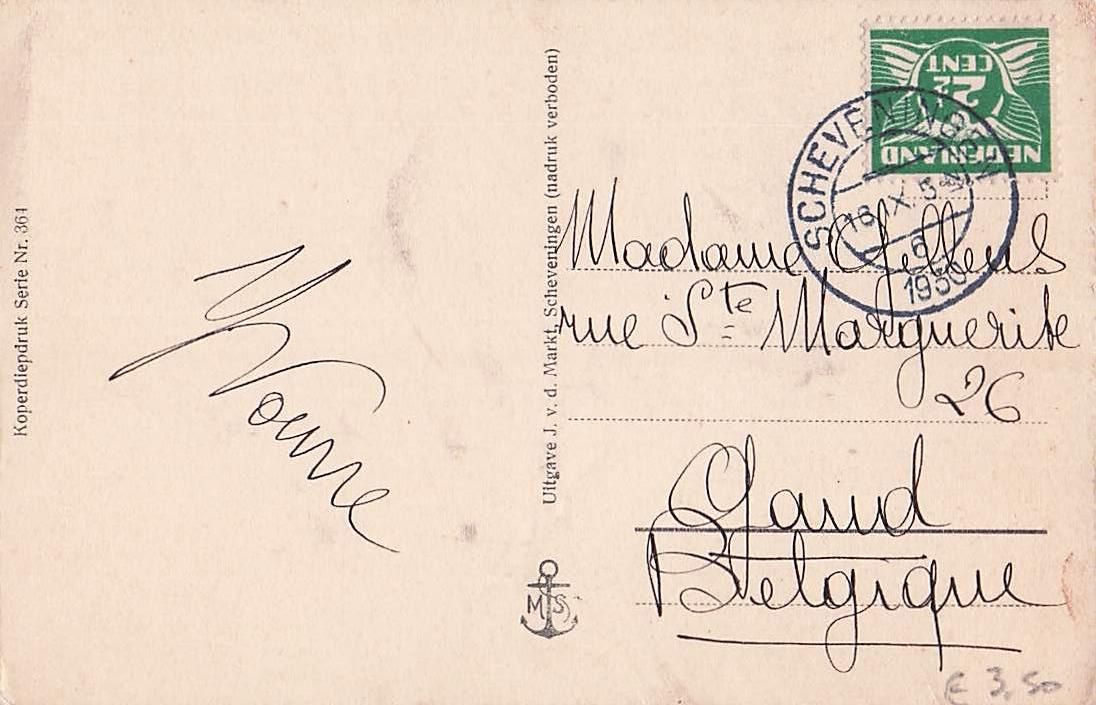 Koperdiepdruk Serie Nr. 364
Yvonne
Uitgave J. v. d. Markt, Scheveningen (nadruk verboden)
M S
NEDERLAND
2½
CENT
SCHEVENINGEN
16.IX.5
6
1930
Madame
rue Ste Marguerite
26
Gand
Belgique
€ 3,50